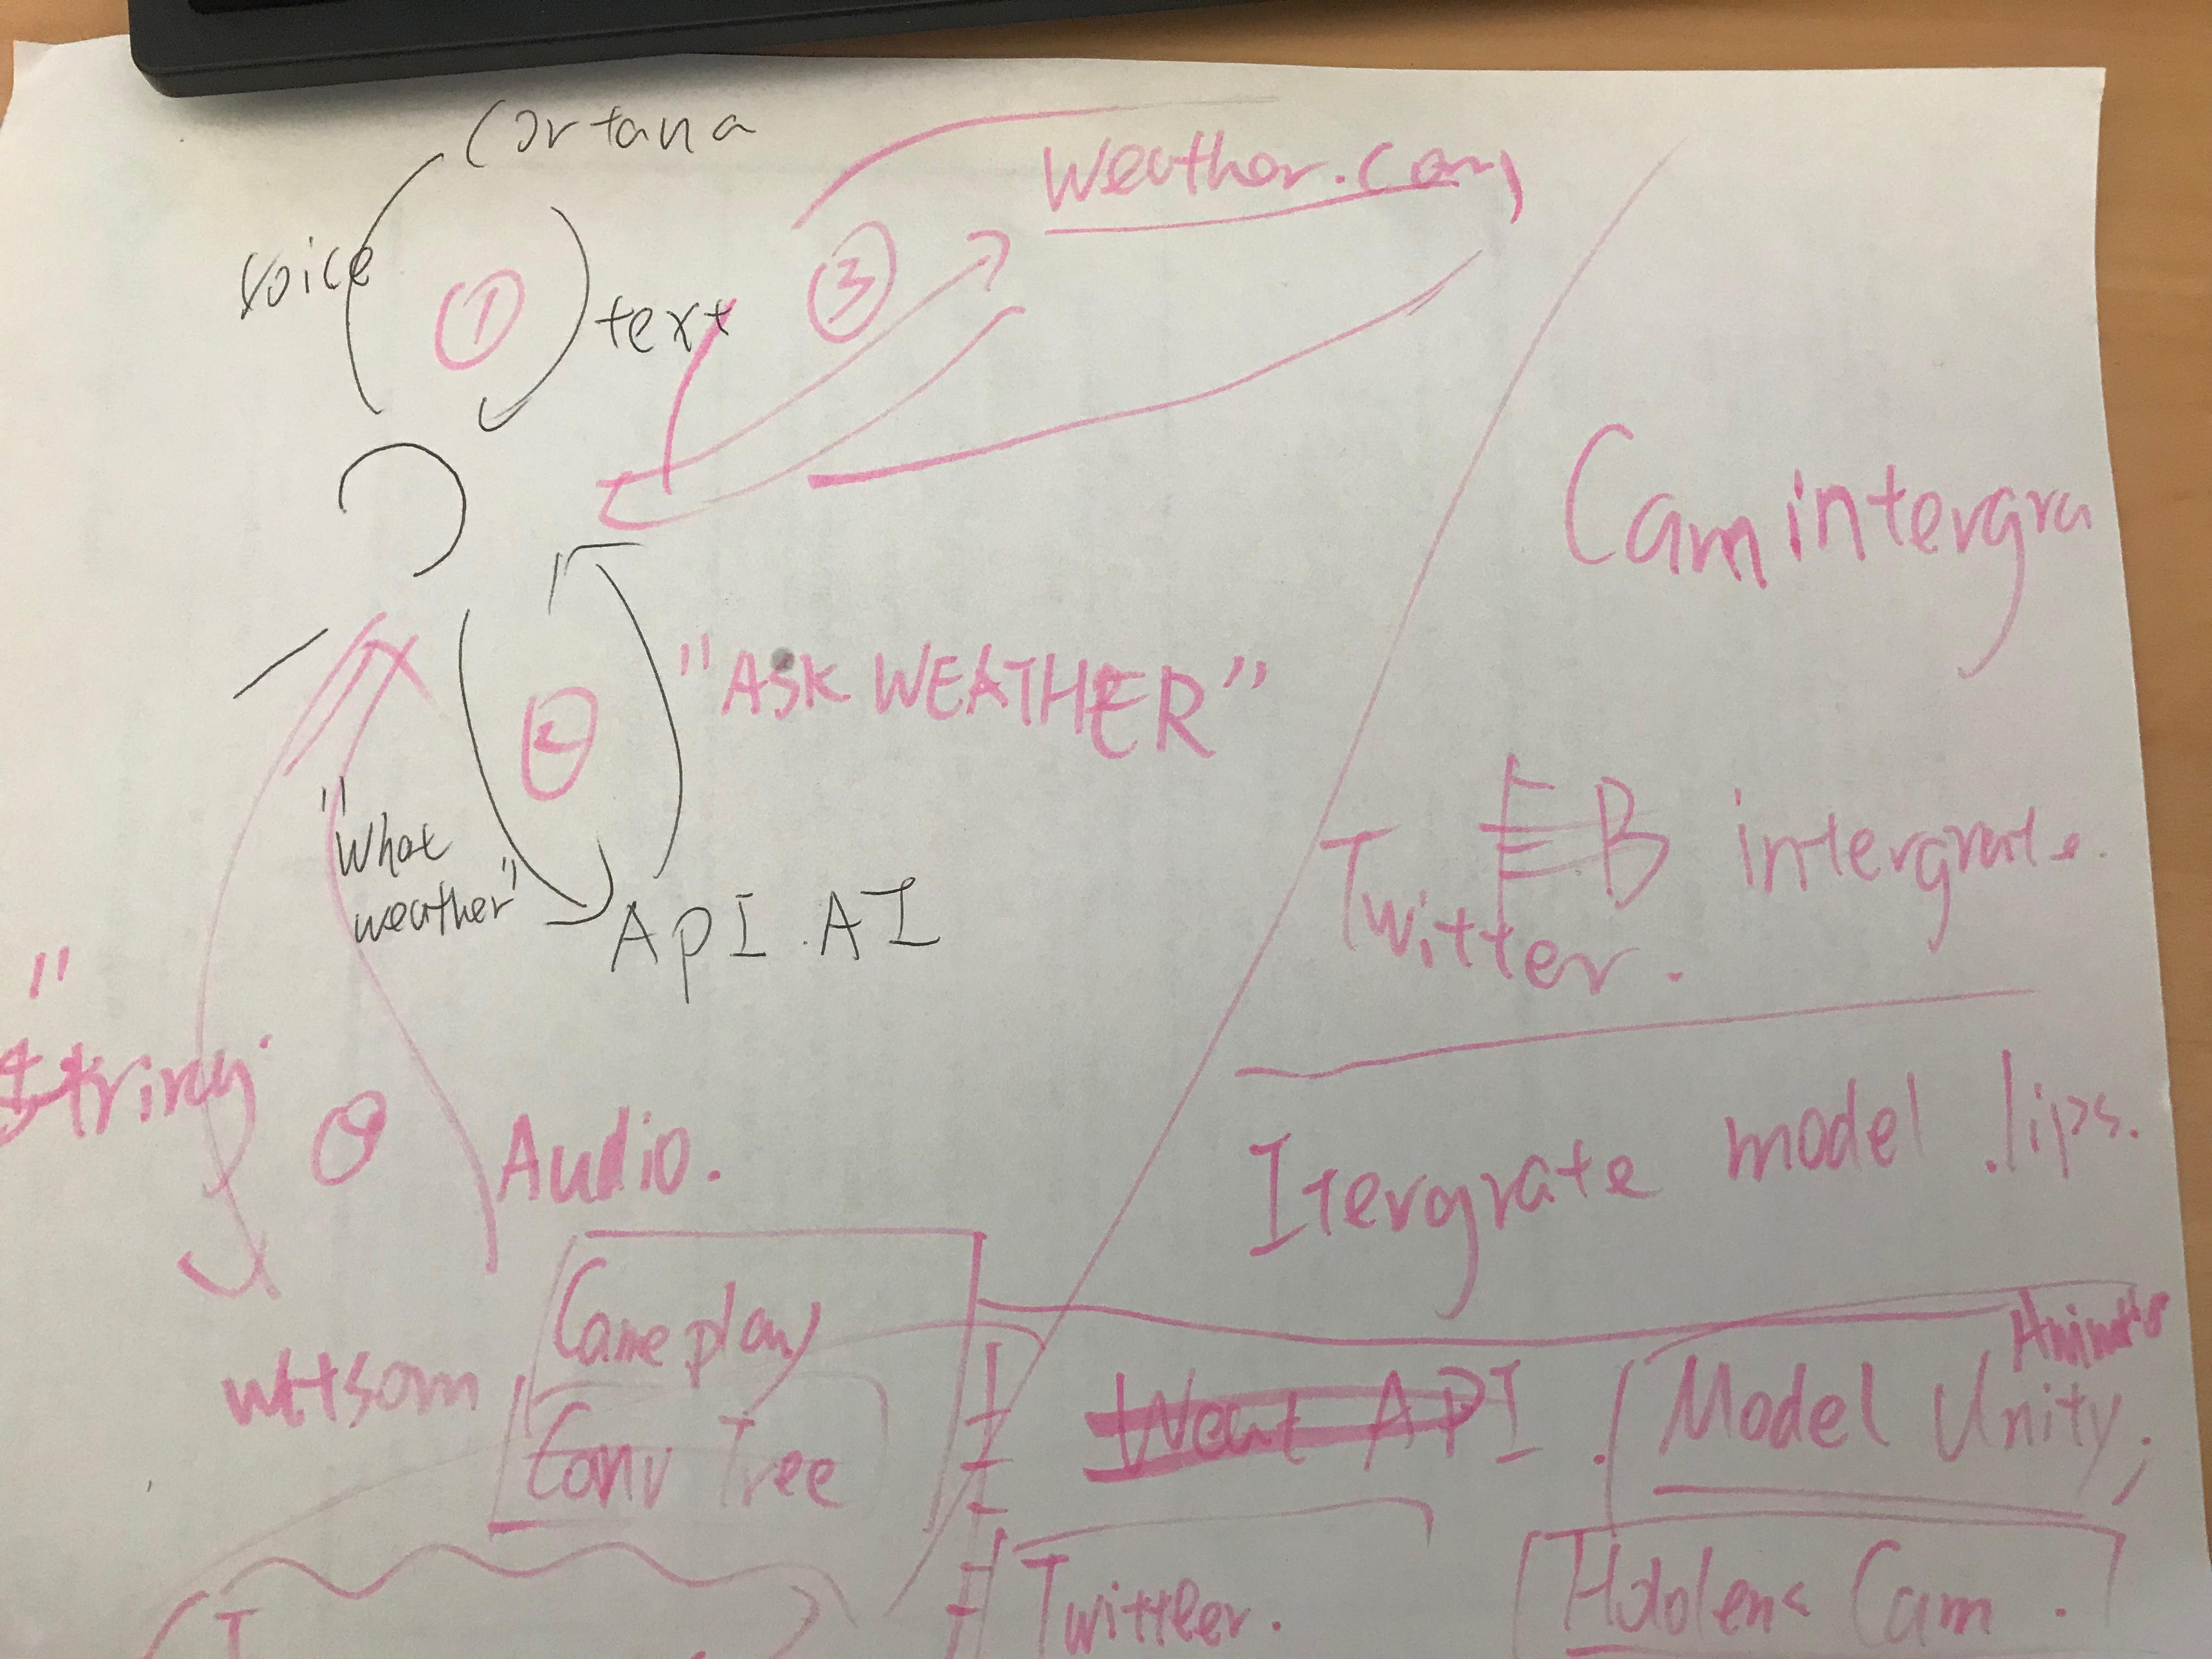 Cortana
voice
①
text
③
weather.com
"ASK WEATHER"
②
"What
weather"
API.AI
"
String
Audio.
Gameplay
Conv Tree
Cam intergra
FB intergrate.
Twitter.
Itergrate model .lips.
Weat API.
Model Unity;
Twittler.
Hololens Cam.